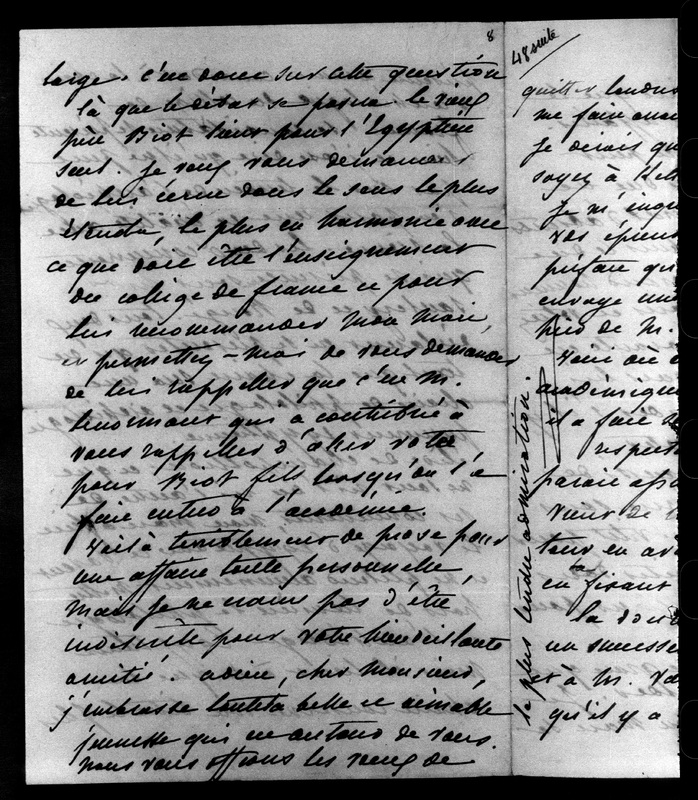 8
large. c'est donc sur cette question
là que le débat se posera. le vieux
père Biot tient pour l'Egyptien
seul. Je veux vous demander
de lui écrire dans le sens le plus
étendu, le plus en harmonie avec
ce que doit être l'enseignement
du collège de france et pour
lui recommander mon mari,
et permettez-moi de vous demander
de lui rappeler que c'est M.
Lenormant qui a contribué à
vous rappeler d'aller voter
pour Biot fils lorsqu'on l'a
fait entrer à l'académie.
Voilà terriblement de prose pour
une affaire toute personnelle,
mais je ne crains pas d'être
indiscrète pour votre bienveillante
amitié. adieu, cher Monsieur,
j'embrasse toute la belle et aimable
jeunesse qui est autour de vous.
nous vous offrons les vœux de
la plus tendre admiration.
48 suite
quitter
me faire
je devais
soyez à
Je m'
vos
préface
envoyé
près de M.
Voici où
académique
il a fait
paraît
Vient de
tour en
en faisant
la
un
et à M.
qu'il y a